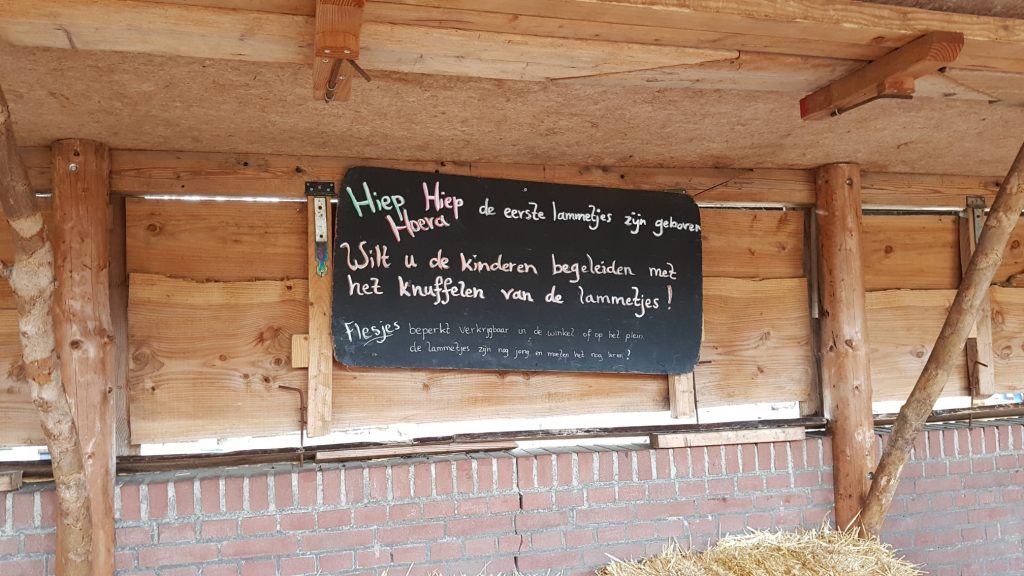 Hiep Hiep de eerste lammetjes zijn geboren
Hoera
Wilt u de kinderen begeleiden met
het knuffelen van de lammetjes!
Flesjes beperkt verkrijgbaar in de winkel of op het plein
de lammetjes zijn nog jong en moeten het nog leren!